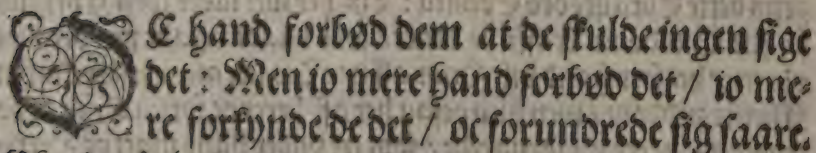 OC hand forbød dem at de skulde ingen sige
det : Men io mere hand forbød det / io me⸗
re forkynde de det / oc forundrede sig saare.